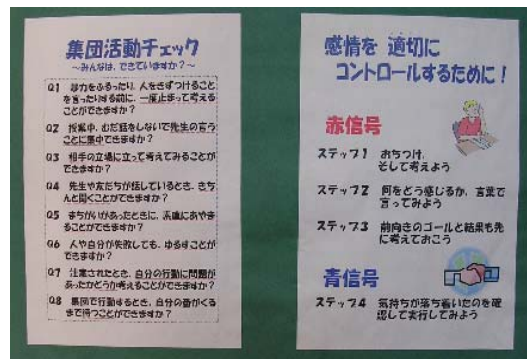 集団活動チェック
～みんなは、できていますか？～
Q1 暴力をふるったり、人をきずつけること
を言ったりする前に、一度止まって考える
ことができますか？
Q2 授業中、むだ話をしないで先生の言う
ことに集中できますか？
Q3 相手の立場に立って考えてみることが
できますか？
Q4 先生や友だちが話しているとき、きち
んと聞くことができますか？
Q5 まちがいがあったときに、素直にあやま
ることができますか？
Q6 人や自分が失敗しても、ゆるすことが
できますか？
Q7 注意されたとき、自分の行動に問題が
あったかどうか考えることができますか？
Q8 集団で行動するとき、自分の番がくる
まで待つことができますか？
感情を 適切に
コントロールするために！
赤信号
ステップ1 おちつけ、
そして考えよう
ステップ2 何をどう感じるか、言葉で
言ってみよう
ステップ3 前向きのゴールと結果も先
に考えておこう
青信号
ステップ4 気持ちが落ち着いたのを確
認して実行してみよう